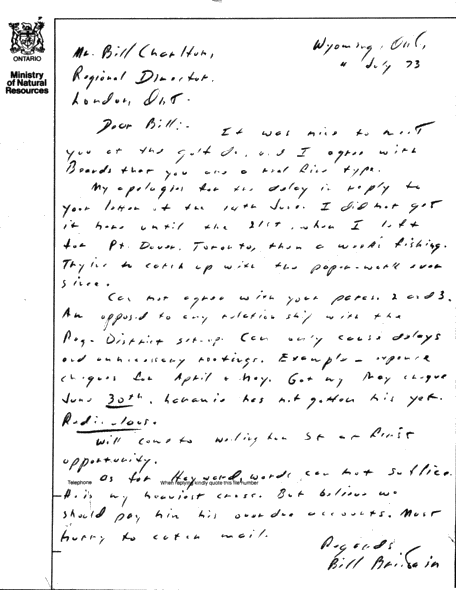 ONTARIO
Ministry
of Natural
Resources
Wyoming, Ont,
July 73
Mr. Bill Charlton,
Regional Director.
London, Ont.
Dear Bill:- It was nice to meet
you at the golf do, and I agree with
that you are a real fine type.
My apologies for the delay in reply to
your letter of the 14th June. I did not get
it here until the 21st, when I left
for Pt. Dover, Toronto, then a weeks fishing.
Trying to catch up with the paper-work ever
since.
Can not agree with your paras. 2 and 3.
Am opposed to any relation ship with the
Reg- District set-up. Can only cause delays
and unnecessary routings. Example - expense
cheques for April & May. Got my May cheque
June 30th, has not gotten his yet.
Rediculous.
Will come to St at first
opportunity.
As for Hayward, words can not suffice.
Telephone When replying kindly quote this file number
is my heaviest cross. But believe we
should pay him his overdue accounts. Must
hurry to catch mail.
Regards
Bill